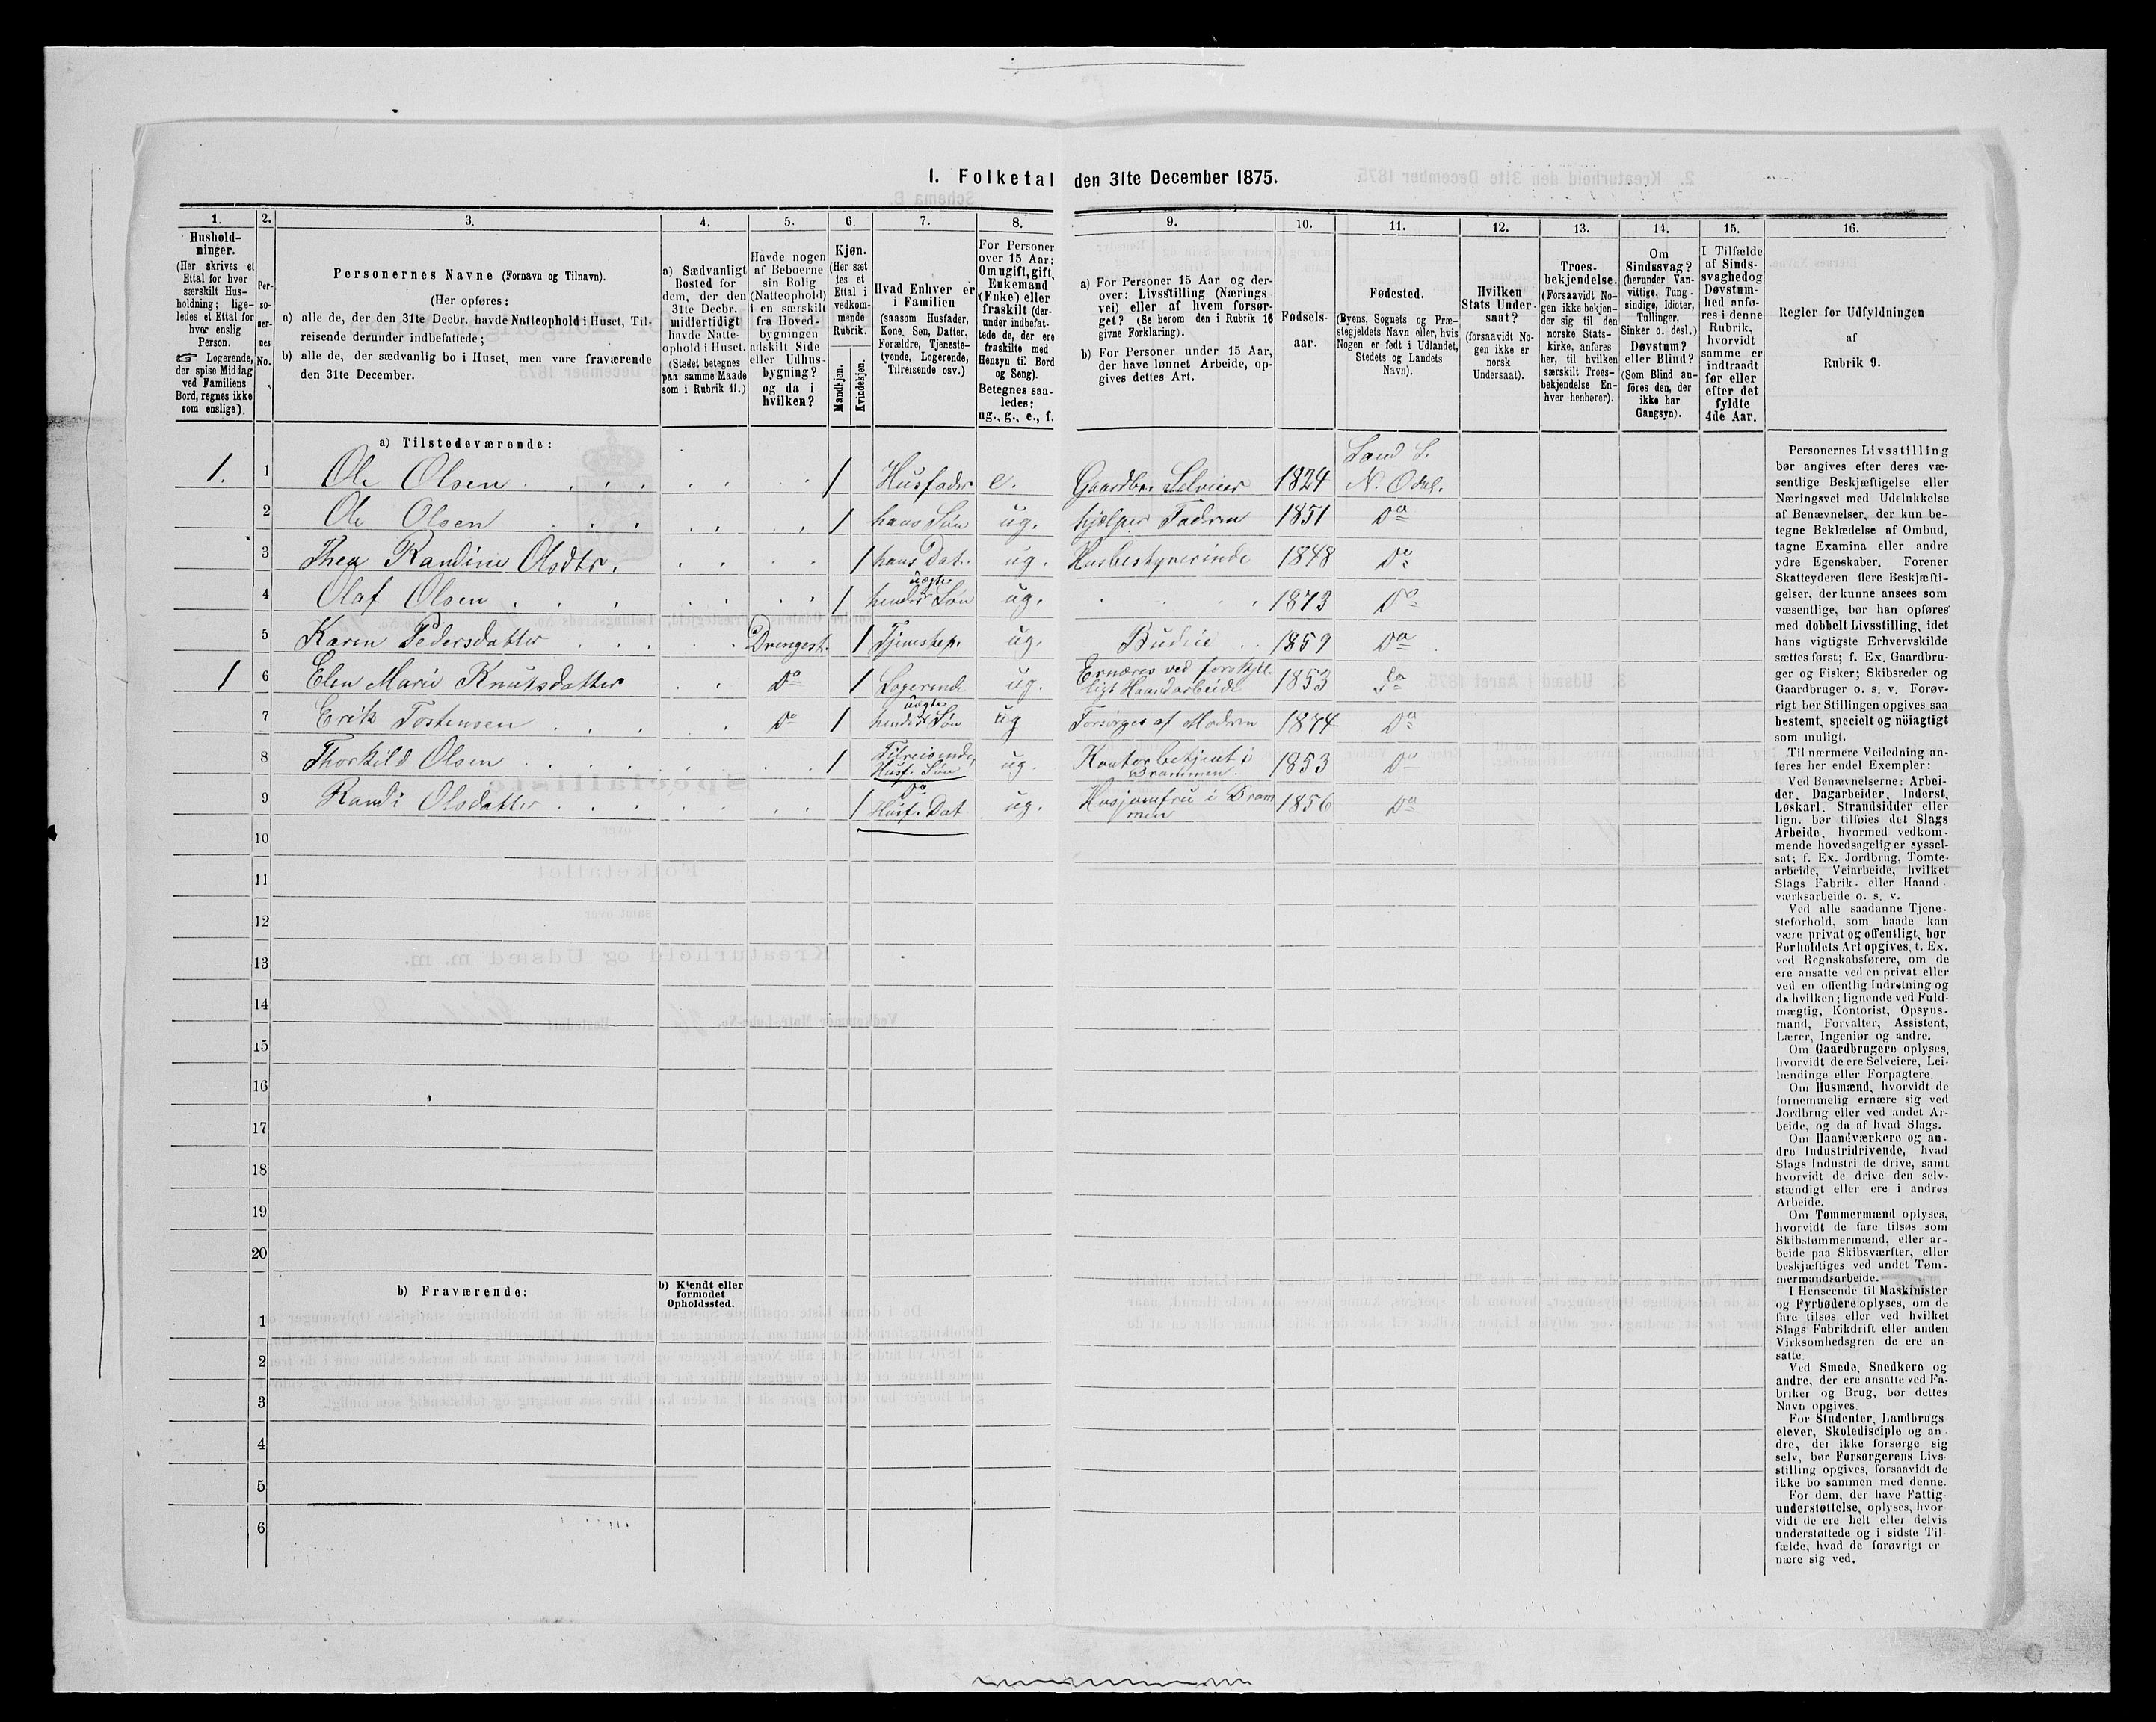 I. Folketal den 31te December 1875.
1. 2. 3. 4. 5. 6. 7. 8. 9. 10. 11. 12. 13. 14. 15. 16.
Hushold-
ninger.
(Her skrives et
Ettal for hver
særskilt Hus-
holdning; lige-
ledes et Ettal for
hver enslig
Person.
☞ Logerende,
der spise Middag
ved Familiens
Bord, regnes ikke
som enslige).
Per-
so-
ner-
nes
No.
Personernes Navne (Fornavn og Tilnavn).
(Her opføres:
a) alle de, der den 31te Decbr. havde Natteophold i Huset, Til-
reisende derunder indbefattede;
b) alle de, der sædvanlig bo i Huset, men vare fraværende
den 31te December.
a) Sædvanligt
Bosted for
dem, der den
31te Decbr.
midlertidigt
havde Natte-
ophold i Huset.
(Stedet betegnes
paa samme Maade
som i Rubrik 11.)
Havde nogen
af Beboerne
sin Bolig
(Natteophold)
i en særskilt
fra Hoved-
bygningen
adskilt Side
eller Udhus-
bygning?
og da i
hvilken?
Kjøn.
(Her sæt
tes et
Ettal i
vedkom-
mende
Rubrik.
Mandkjøn.
Kvindekjøn.
Hvad Enhver er
i Familien
(saasom Husfader,
Kone, Søn, Datter,
Forældre, Tjeneste-
tyende, Logerende,
Tilreisende osv.)
For Personer
over 15 Aar:
Om ugift, gift,
Enkemand
(Enke) eller
fraskilt (der-
under indbefat-
tede de, der ere
fraskilte med
Hensyn til Bord
og Seng).
Betegnes saa-
ledes:
ug., g., e., f.
a) For Personer 15 Aar og der-
over: Livsstilling (Nærings
vei) eller af hvem forsør-
get? (Se herom den i Rubrik 16
givne Forklaring).
b) For Personer under 15 Aar,
der have lønnet Arbeide, op-
gives dettes Art.
Fødsels-
aar.
Fødested.
(Byens, Sognets og Præ-
stegjeldets Navn eller, hvis
Nogen er født i Udlandet,
Stedets og Landets
Navn).
Hvilken
Stats Under-
saat?
(forsaavidt No-
gen ikke er
norsk
Undersaat).
Troes-
bekjendelse.
(Forsaavidt No-
gen ikke bekjen-
der sig til den
norske Stats-
kirke, anføres
her, til hvilken
særskilt Troes-
bekjendelse En-
hver henhører).
Om
Sindssvag?
(herunder Van-
vittige, Tung-
sindige, Idioter,
Tullinger,
Sinker o. desl.)
Døvstum?
eller Blind?
(Som Blind an-
føres den, der
ikke har
Gangsyn).
I Tilfælde
af Sinds-
svaghed og
Døvstum-
hed anfø-
res i denne
Rubrik,
hvorvidt
samme er
indtraadt
før eller
efter det
fyldte
4de Aar.
Regler for Udfyldningen
af
Rubrik 9.
a) Tilstedeværende:
Land S.
1. 1 Ole Olsen 1 Husfader e. Gaardbr. Selveier 1824 N. Odal.
2 Ole Olsen 1 hans Søn ug. hjælper Faderen 1851 Do
3 Thea Randine Olsdtr. 1 hans Dat. ug. Husbestyrerinde 1848 Do
uægte
4 Olaf Olsen 1 hendes Søn ug. 1873 Do
5 Karen Pedersdatter Drengest. 1 Tjenestep. ug. Budeie 1859 Do
1 6 Elen Marie Knutsdatter Do 1 Logerende ug. Ernæres ved forskjel-
ligt Haandarbeide 1853 Do
uægte
7 Erik Tostensen Do 1 hendes Søn ug Forsørges af Moderen 1874 Do
8 Thorkild Olsen 1 Tilreisende, Husf. Søn ug. Kontorbetjent i
Drammen. 1853 Do
9 Randi Olsdatter 1 Do Husf. Dat. ug. Husjomfru i Dram
men 1856 Do
10
11
12
13
14
15
16
17
18
19
20
b) Fraværende:
b) Kjendt eller
formodet
Opholdssted.
1
2
3
4
5
6
Personernes Livsstilling
bør angives efter deres væ-
sentlige Beskjæftigelse eller
Næringsvei med Udelukkelse
af Benævnelser, der kun be-
tegne Beklædelse af Ombud,
tagne Examina eller andre
ydre Egenskaber. Forener
Skatteyderen flere Beskjæfti-
gelser, der kunne ansees som
væsentlige, bør han opføres
med dobbelt Livsstilling, idet
hans vigtigste Erhvervskilde
sættes først; f. Ex. Gaardbru-
ger og Fisker; Skibsreder og
Gaardbruger o. s. v. Forøv-
rigt bør Stillingen opgives saa
bestemt, specielt og nöiagtigt
som muligt.
Til nærmere Veiledning an-
føres her endel Exempler:
Ved Benævnelserne: Arbei-
der, Dagarbeider, Inderst,
Løskarl, Strandsidder eller
lign. bør tilføies det Slags
Arbeide, hvormed vedkom-
mende hovedsagelig er syssel-
sat; f. Ex. Jordbrug, Tomte-
arbeide, Veiarbeide, hvilket
Slags Fabrik- eller Haand-
værksarbeide o. s. v.
Ved alle saadanne Tjene-
steforhold, som baade kan
være privat og offentligt, bør
Forholdets Art opgives, t. Ex.
ved Regnskabsførere, om de
ere ansatte ved en privat eller
ved en offentlig Indretning og
da hvilken; lignende ved Fuld-
mægtig, Kontorist, Opsyns-
mand, Forvalter, Assistent,
Lærer, Ingeniør og andre.
Om Gaardbrugere oplyses,
hvorvidt de ere Selveiere, Lei-
lændinge eller Forpagtere.
Om Husmænd, hvorvidt de
fornemmelig ernære sig ved
Jordbrug eller ved andet Ar-
beide, og da af hvad Slags.
Om Haandværkere og an-
dre Industridrivende, hvad
Slags Industri de drive, samt
hvorvidt de drive den selv-
stændigt eller ere i andres
Arbeide.
Om Tømmermænd oplyses,
hvorvidt de fare tilsøs som
Skibstømmermænd, eller ar-
beide paa Skibsværfter, eller
beskjæftiges ved andet Tøm-
mermandsarbeide.
I Henseende til Maskinister
og Fyrbødere oplyses, om de
fare tilsøs eller ved hvilket
Slags Fabrikdrift eller anden
Virksomhedsgren de ere an-
satte.
Ved Smede, Snedkere og
andre, der ere ansatte ved Fa-
briker og Brug, bør dettes
Navn opgives.
For Studenter, Landbrugs
elever, Skoledisciple og an
dre, der ikke forsørge sig
selv, bør Forsørgerens Livs-
stilling opgives, forsaavidt de
ikke bo sammen med denne.
For dem, der have Fattig
understøttelse, oplyses, hvor
vidt de ere helt eller delvis
understøttede og i sidste Til-
fælde, hvad de forøvrigt er
nære sig ved.